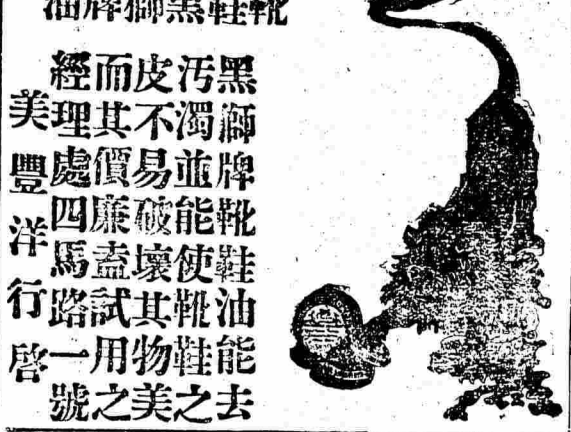 靴鞋黑獅牌油
黑獅牌靴鞋油能去
汚濁並能使靴鞋之
皮不易破壞其物美
而其價廉盍試用之
經理處四馬路一號
美豐洋行啓